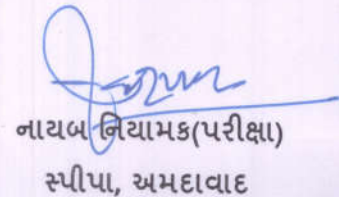 નાયબ નિયામક(પરીક્ષા)
સ્પીપા, અમદાવાદ